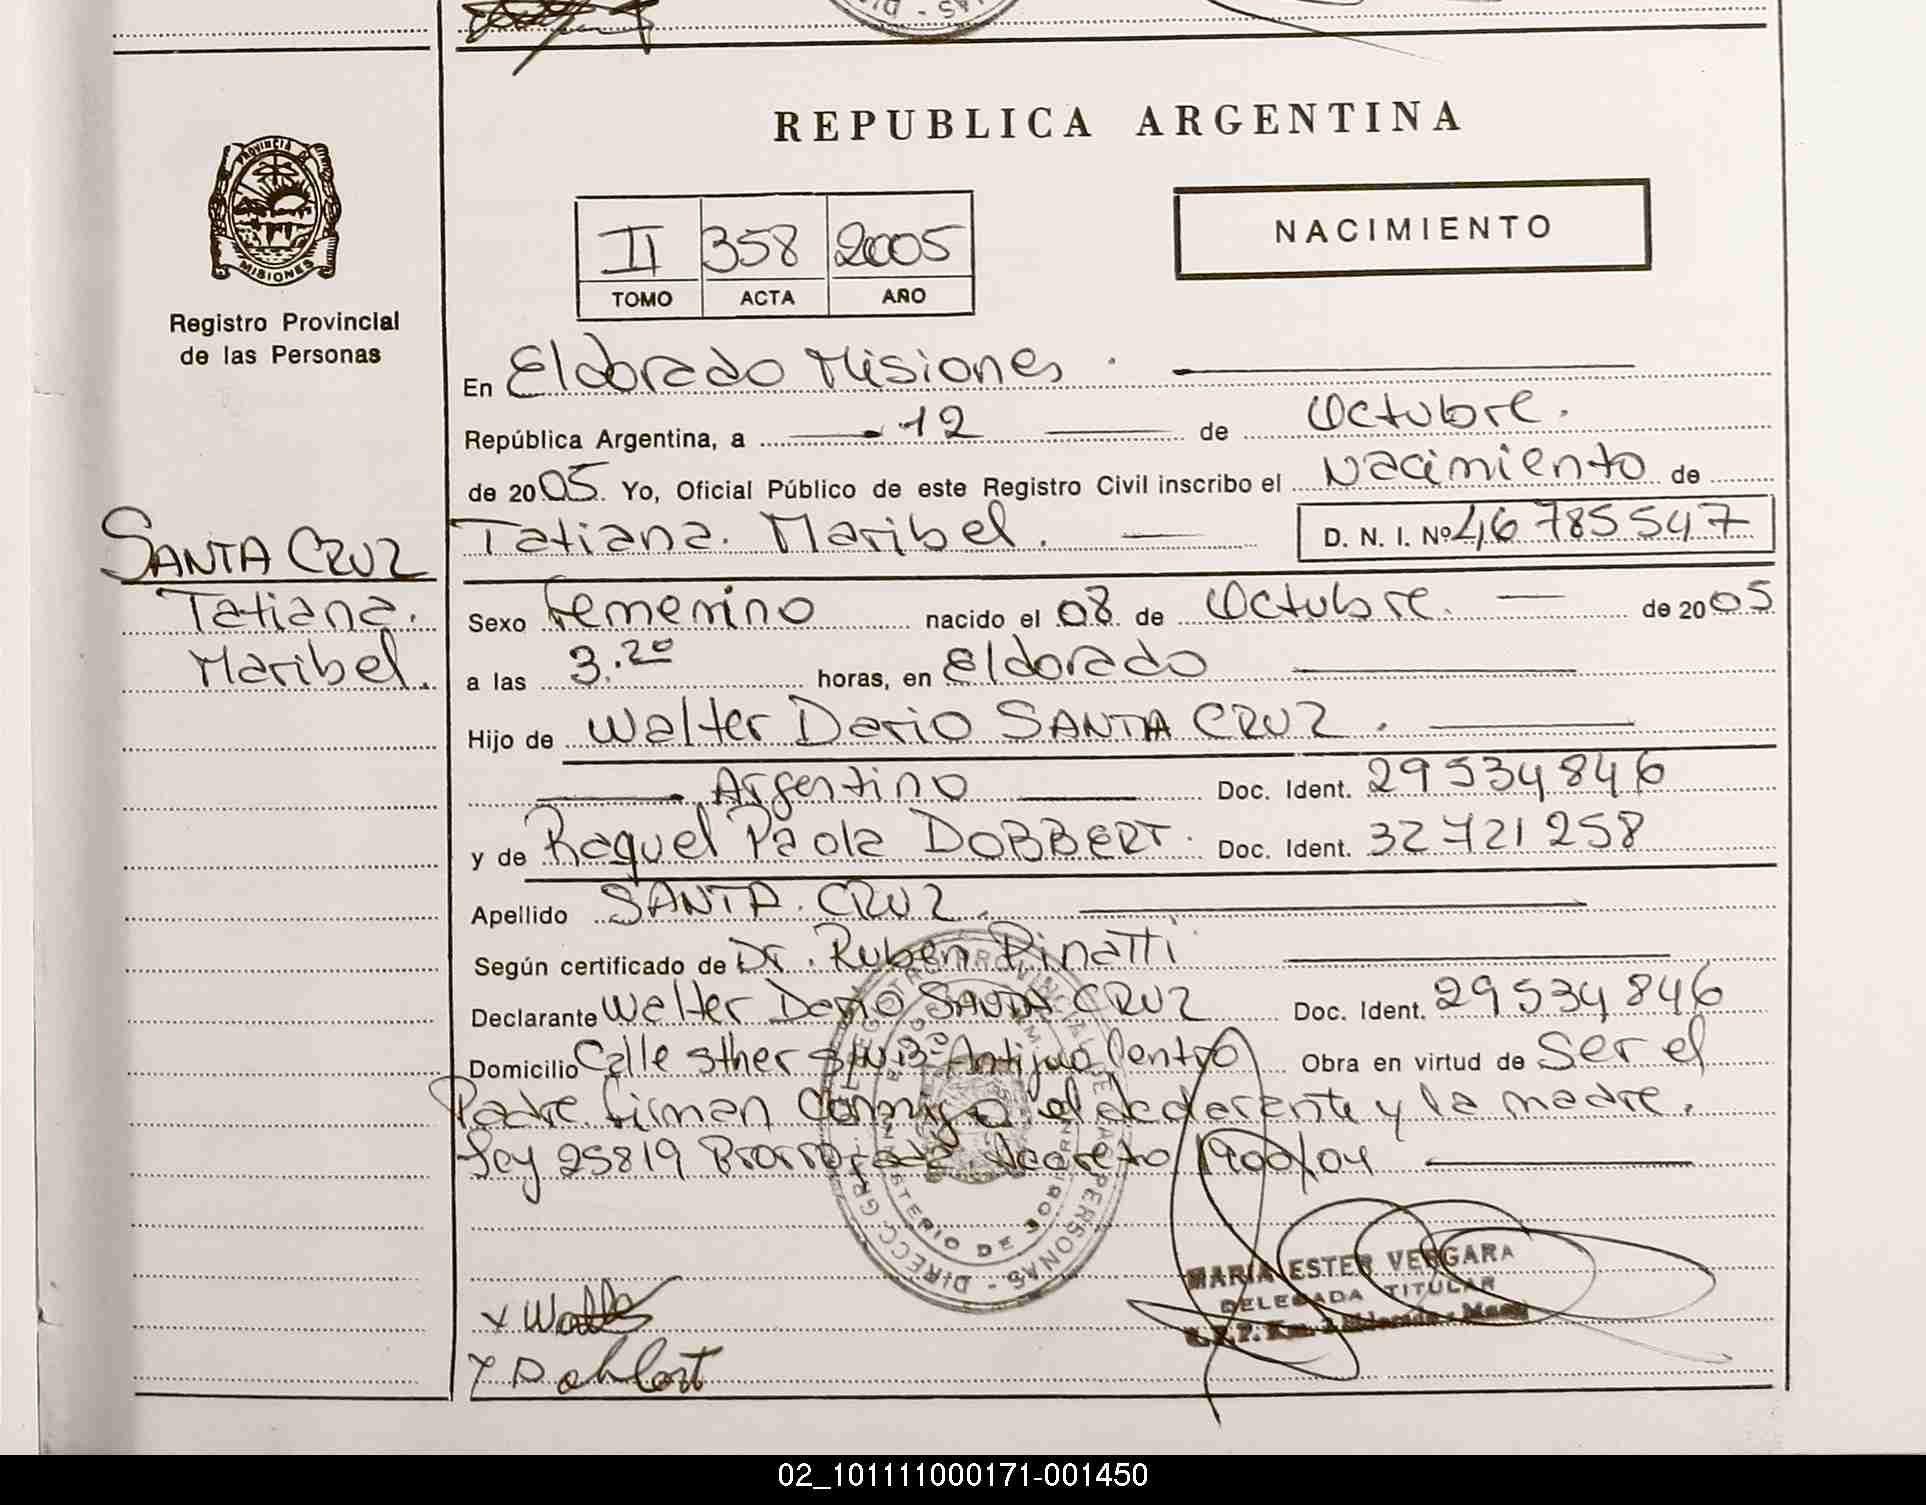 REPUBLICA ARGENTINA
PROVINCIA DE
MISIONES
Registro Provincial
de las Personas
II 358 2005
TOMO ACTA AÑO
NACIMIENTO
En Eldorado Misiones.
República Argentina, a 12 de Octubre.
de 2005. Yo, Oficial Público de este Registro Civil inscribo el Nacimiento de
Tatiana Maribel. D. N. I. Nº 46785547
SANTA CRUZ
Tatiana.
Maribel.
Sexo Femenino nacido el 08 de Octubre. de 2005
a las 3.20 horas, en Eldorado
Hijo de Walter Dario SANTA CRUZ.
Argentino Doc. Ident. 29534846
y de Raquel Paola DOBBERT. Doc. Ident. 32721258
Apellido SANTA CRUZ.
Según certificado de Dr. Ruben Pinatti
Declarante Walter Dario SANTA CRUZ Doc. Ident. 29534846
Domicilio Calle sther S/N Bº Antiguo Centro Obra en virtud de Ser el
Padre. firman Conmigo el declarante y la madre.
Ley 25819 Prorrogada decreto 1900/04
MARIA ESTER VERGARA
DELEGADA TITULAR
02_101111000171-001450